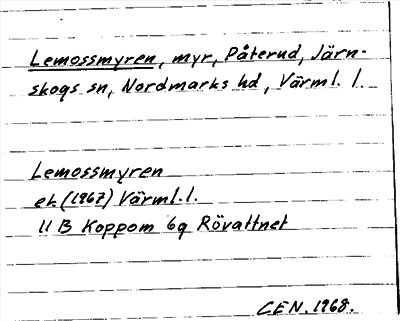 Lemossmyren, myr, Påterud, Järn-
skogs sn, Nordmarks hd, Värml. l.
Lemossmyren
ek (1967) Värml. l.
11 B Koppom 6g Rövattnet
CEN. 1968.